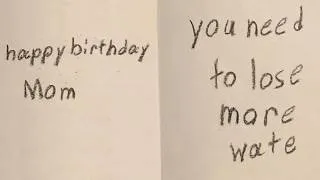 happy birthday
Mom
you need
to lose
more
wate